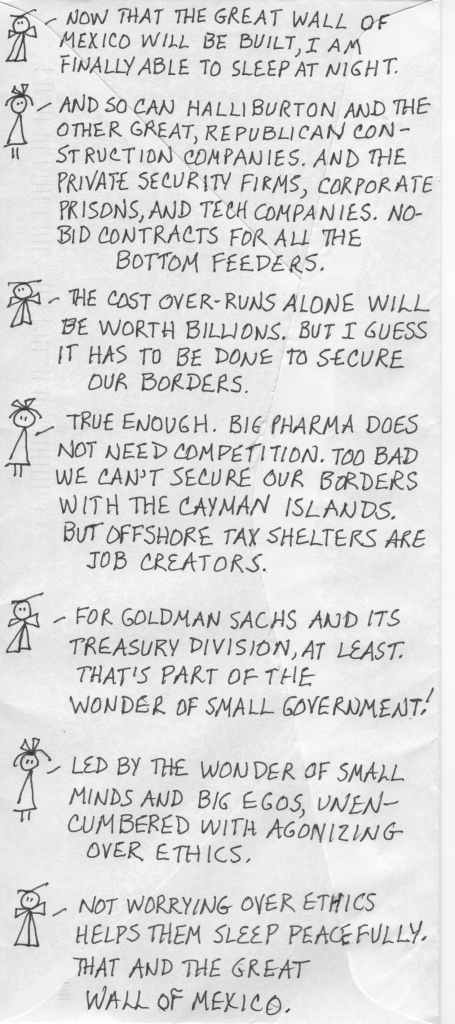 NOW THAT THE GREAT WALL OF
MEXICO WILL BE BUILT, I AM
FINALLY ABLE TO SLEEP AT NIGHT.
AND SO CAN HALLIBURTON AND THE
OTHER GREAT, REPUBLICAN CON-
STRUCTION COMPANIES. AND THE
PRIVATE SECURITY FIRMS, CORPORATE
PRISONS, AND TECH COMPANIES. NO-
BID CONTRACTS FOR ALL THE
BOTTOM FEEDERS.
THE COST OVER-RUNS ALONE WILL
BE WORTH BILLIONS. BUT I GUESS
IT HAS TO BE DONE TO SECURE
OUR BORDERS.
TRUE ENOUGH. BIG PHARMA DOES
NOT NEED COMPETITION. TOO BAD
WE CAN'T SECURE OUR BORDERS
WITH THE CAYMAN ISLANDS.
BUT OFFSHORE TAX SHELTERS ARE
JOB CREATORS.
FOR GOLDMAN SACHS AND ITS
TREASURY DIVISION, AT LEAST.
THAT'S PART OF THE
WONDER OF SMALL GOVERNMENT!
LED BY THE WONDER OF SMALL
MINDS AND BIG EGOS, UNEN-
CUMBERED WITH AGONIZING
OVER ETHICS.
NOT WORRYING OVER ETHICS
HELPS THEM SLEEP PEACEFULLY.
THAT AND THE GREAT
WALL OF MEXICO.